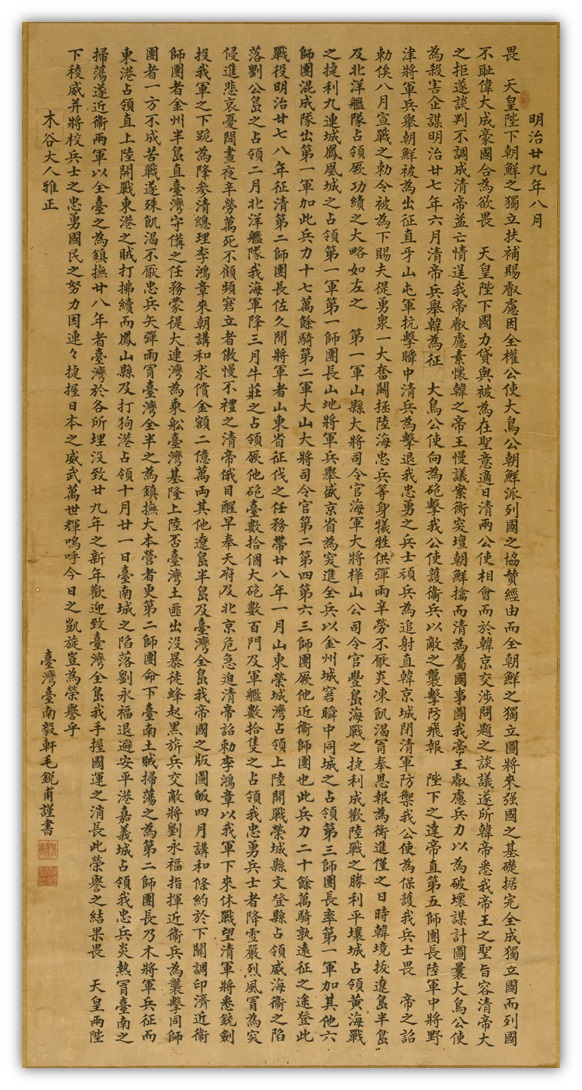 明治廿九年八月
畏　天皇陛下朝鮮之獨立扶補賜叡慮因全權公使大鳥公朝鮮派列國之協贊經由而全朝鮮之獨立圖將來强國之基礎据完全成獨立國而列國
不耻偉大成豪國合為欲畏　天皇陛下國力貸與被為在聖意適日清兩公使相會而於韓京交涉問題之談議遂所韓帝悉我帝王之聖旨容清帝大
之拒遂談判不調成清帝益亡情逞我帝叡慮素懷韓之帝王慢議案衝突壇朝鮮擒而清為屬國事圖我帝王叡慮兵力以為破壞謀計圖曩大鳥公使
為殺害企謀明治廿七年六月清帝兵舉韓為征　大鳥公使向為砲擊我公使護衞兵以敵之襲擊防飛報　陛下之達帝直第五師團長陸軍中將野
津將軍兵舉朝鮮被為出征直牙山屯軍抗擊瞬中清兵為擊退我忠勇之兵士頑兵為追射直韓京城閉清軍防禦我公使為保護我兵士畏　帝之詔
勅俟八月宣戰之勅令被為下賜夫從勇衆一大奮鬪拯陸海忠兵等身犧牲供彈雨辛勞不厭炎凍飢渴冐奉恩報為衝進僅之日時韓境拔遼島半島
及北洋艦隊占領厥功績之大略如左之　第一軍山縣大將司令官海軍大將樺山公司令官豐島海戰之捷利成歡陸戰之勝利平壤城占領黃海戰
之捷利九連城鳳凰城之占領第一軍第一師團長山地將軍兵舉盛京省為突進全兵以金州城窘瞬中同城之占領第三師團長率第一軍加其他六
師團混成隊出第一軍加此兵力十七萬餘騎第二軍大山大將司令官第二第四第六三師團厥他近衞師團也此兵力二十餘萬騎孰遠征之途登此
戰役明治廿七八年征清第二師團長佐久間將軍者山東省征伐之任務帶廿八年一月山東榮城灣占領上陸開戰榮城縣文登縣占領威海衞之陷
落劉公島之占領二月北洋艦隊我海軍降三月牛莊之占領厥他砲臺數拾個大砲數百門及軍艦數拾隻之占領我忠勇兵士者降雪嚴烈風冐為突
侵進悲哀憂悶晝夜辛勞萬死不顧頻窘立者傲慢不禮之清帝俄目醒早奉天府及北京危急迫清帝詔勅李鴻章以我軍下來休戰望清軍將悉銳劍
投我軍之下跪為降參清總理李鴻章來朝講和求償金額二億萬兩其他遼島半島及臺灣全島我帝國之版圖皈四月講和條約於下關調印濟近衞
師團者金州半島直臺灣守備之任務蒙從大連灣為乘船臺灣基隆上陸否臺灣土匪出没暴徒蜂起黑旂兵交敵將劉永福指揮近衞兵為襲擊同師
團者一方不成苦戰遂殊飢渴不厭忠兵矢彈雨冐臺灣全半之為鎮撫大本營者更第二師團命下臺南土賊掃蕩之為第二師團長乃木將軍兵征而
東港占領直上陸開戰東港之賊打拂續而鳳山縣及打狗港占領十月廿一日臺南城之陷落劉永福退避安平港嘉義城占領我忠兵炎熱冐臺南之
掃蕩遂近衞兩軍以全臺之為鎮撫廿八年者臺灣於各所埋没致廿九年之新年歡迎致臺灣全島我手握國運之消長此榮譽之結果畏　天皇兩陛
下稜威并將校兵士之忠勇國民之努力因連々捷握日本之威武萬世輝嗚呼今日之凱旋豈為榮譽乎
木谷大人雅正
臺灣臺南毅軒毛銳甫謹書